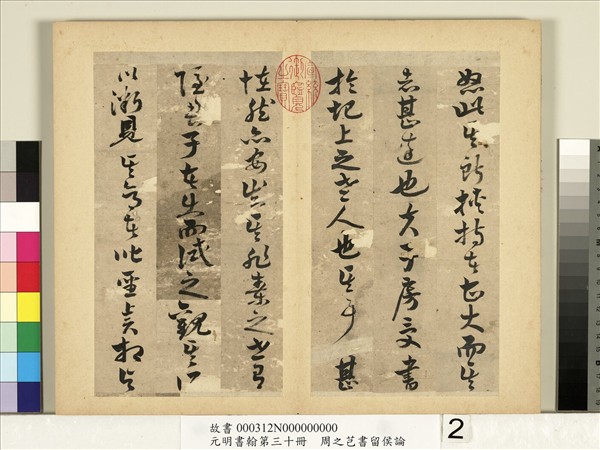 怒此其所挾持者甚大而其
志甚遠也夫子房受書
於圯上之老人也其事甚
怪然亦安知其非秦之世有
隱君子者出而試之觀其所
以微見其意者皆聖賢相與
宣統御覽之寶
故書 000312N000000000
元明書翰第三十冊 周之芑書留侯論
2